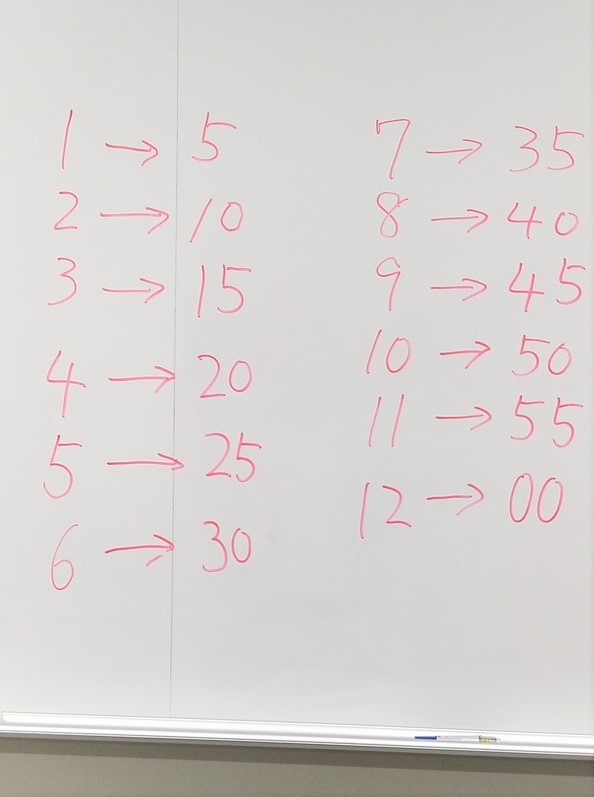 1 → 5
2 → 10
3 → 15
4 → 20
5 → 25
6 → 30
7 → 35
8 → 40
9 → 45
10 → 50
11 → 55
12 → 00